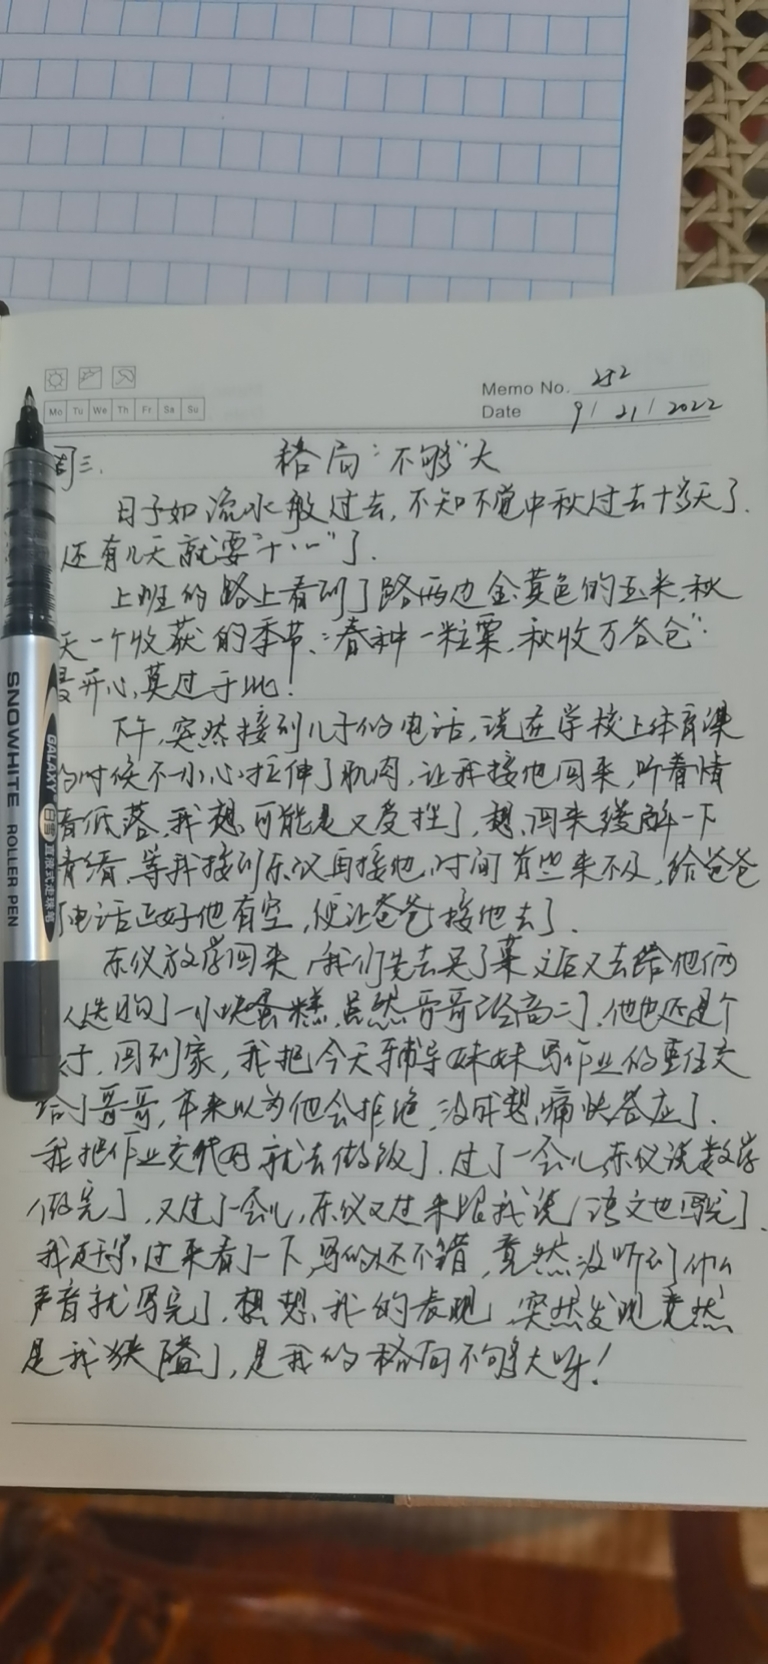 Memo No. 252
Mo Tu We Th Fr Sa Su
Date 9/21/2022
周三. 格局“不够”大
日子如流水般过去,不知不觉中秋过去十多天了.
还有几天就要“十一”了.
上班的路上看到了路两边金黄色的玉米,秋
天一个收获的季节,“春种一粒粟,秋收万谷仓”
开心,莫过于此!
下午,突然接到儿子的电话,说在学校上体育课
的时候不小心拉伸了肌肉,让我接他回来,听着情
绪低落,我想可能是又受挫了,想回来缓解一下
情绪,等我接到东仪再接他,时间有些来不及,给爸爸
电话正好他有空,便让爸爸接他去了.
东仪放学回来,我们先去买了菜之后又去给他俩
人选购了一小块蛋糕,虽然哥哥已经高二了,他也还是个
孩子,回到家,我把今天辅导妹妹写作业的重任交
给了哥哥,本来以为他会拒绝,没成想,痛快答应了.
我把作业交代好就去做饭了.过了一会儿,东仪说数学
做完了,又过了一会儿,东仪又过来跟我说,语文也写完了.
我赶紧过来看了一下,写的还不错,竟然没听到什么
声音就写完了.想想我的表现,突然发现竟然
是我狭隘了,是我的格局不够大呀!
SNOWHITE ROLLER PEN
GALAXY 白雪 直液式走珠笔